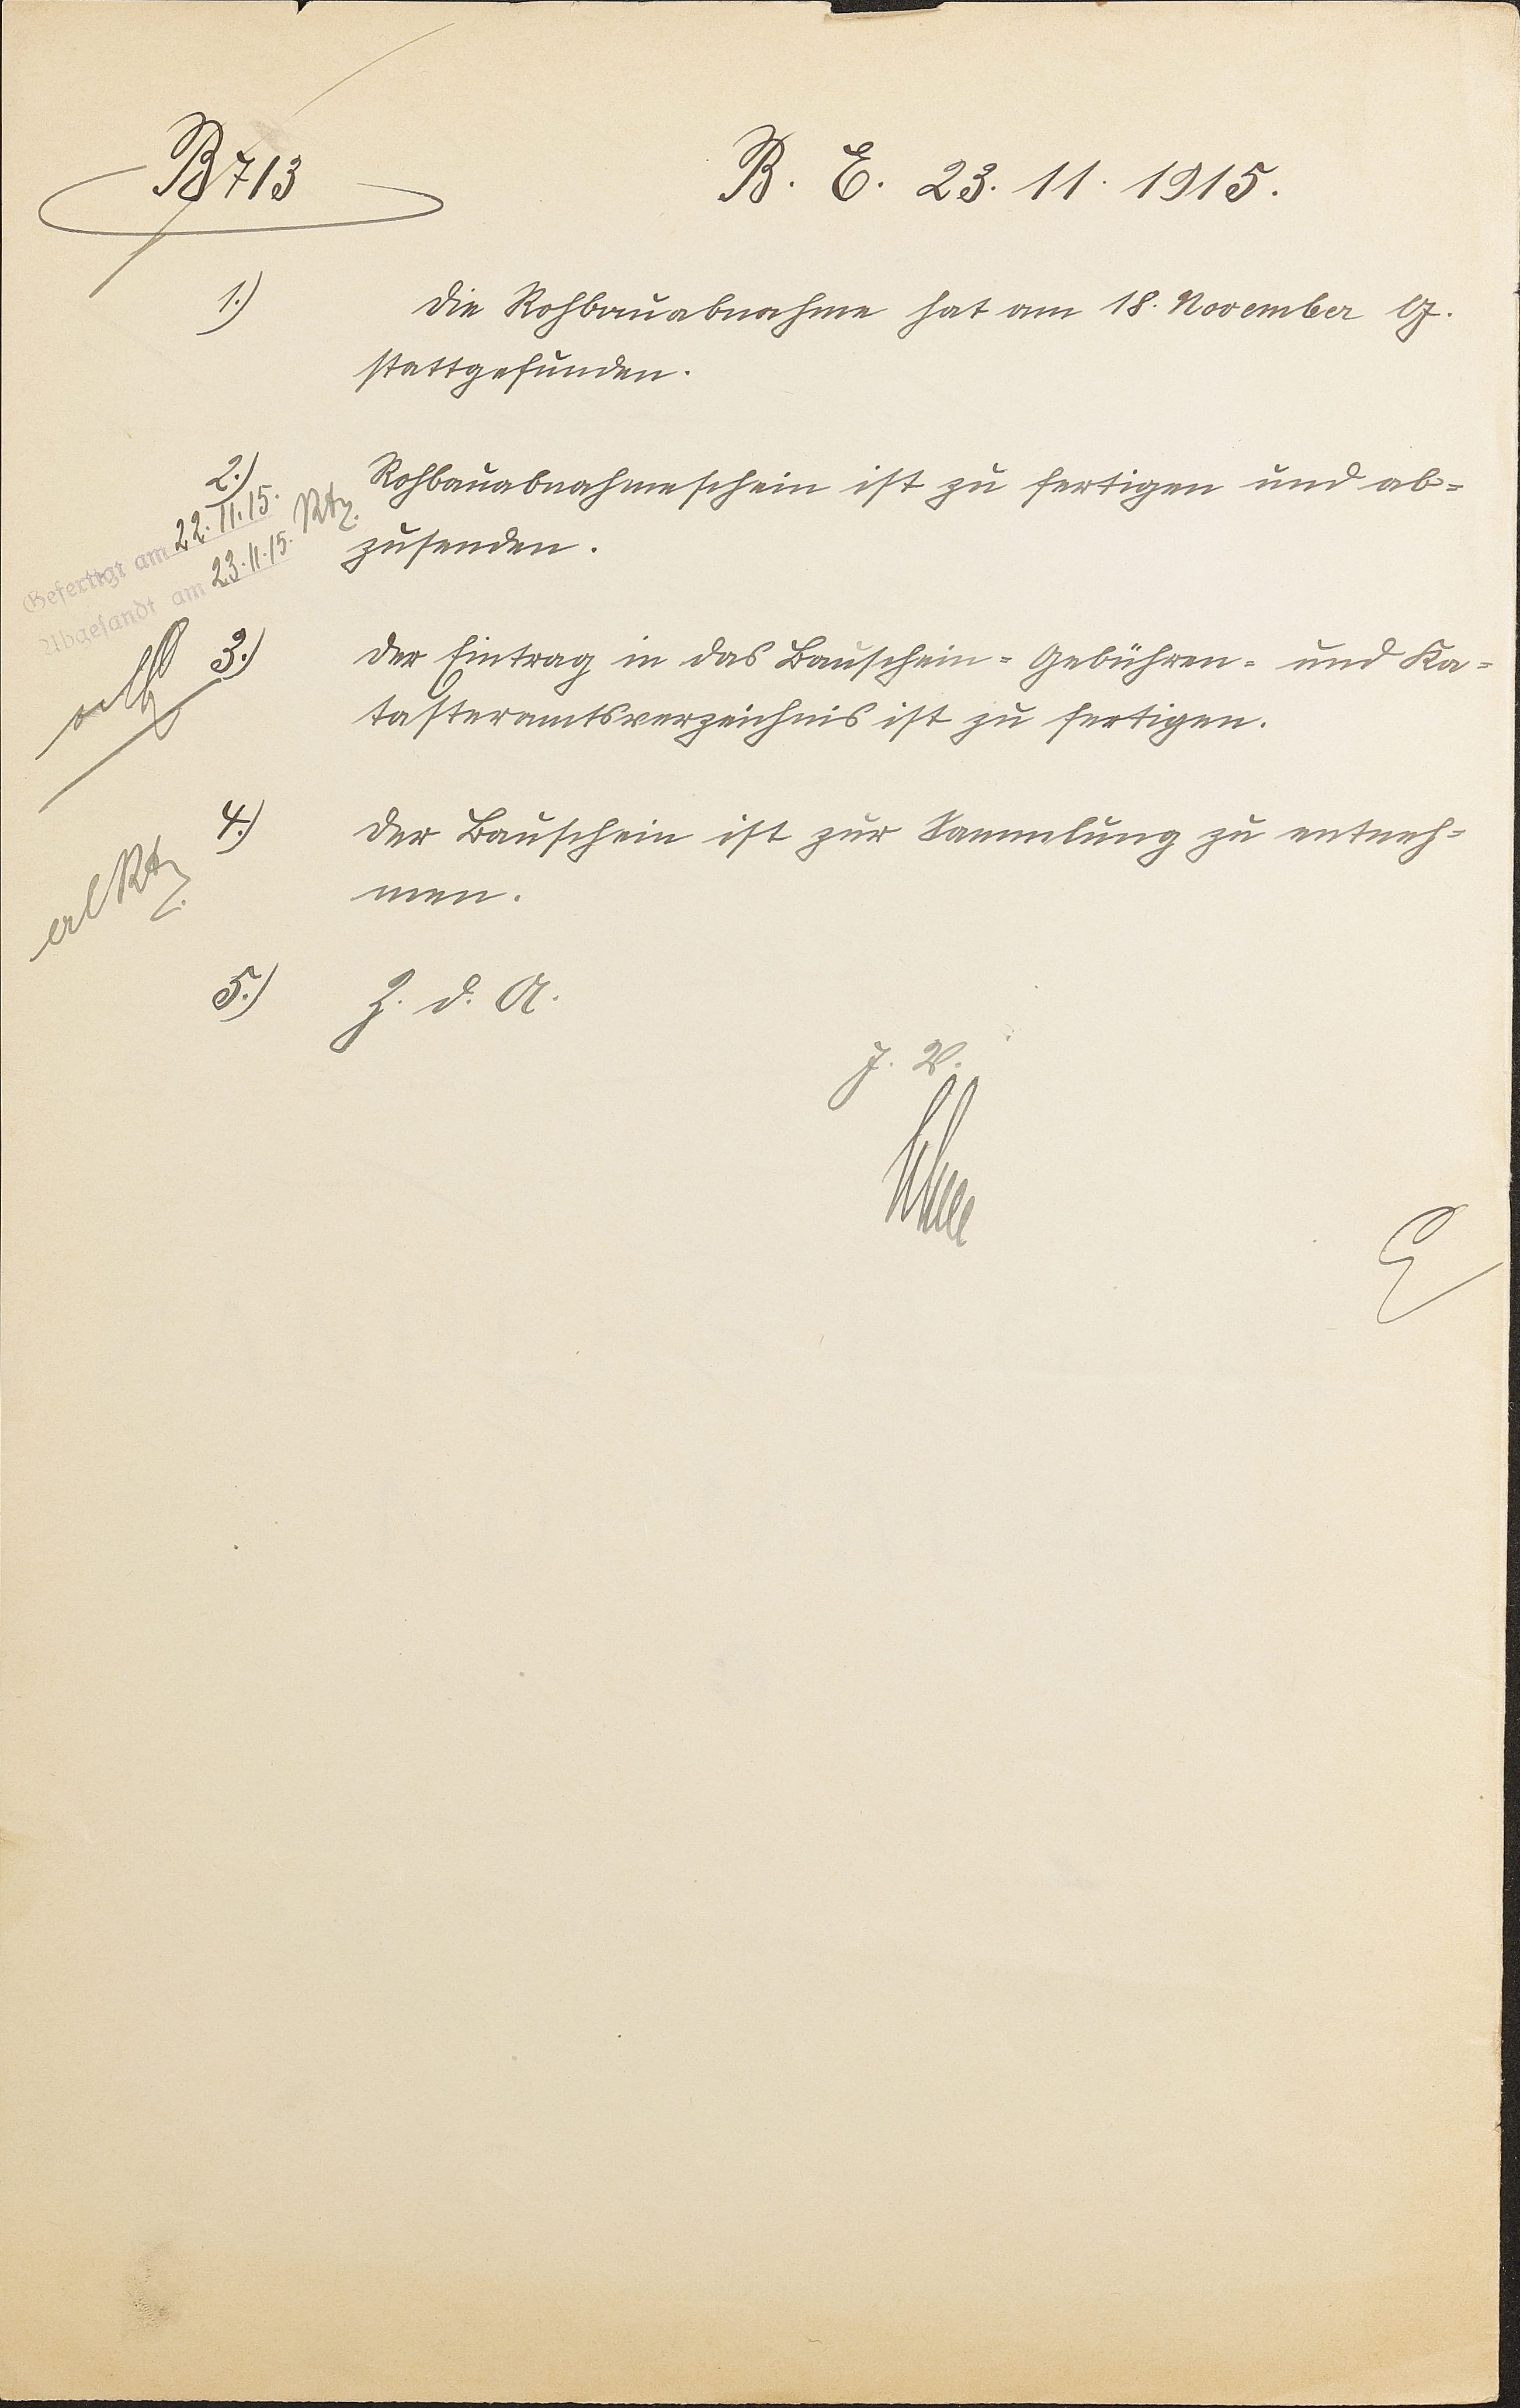 B 713
B. E. 23. 11. 1915.
1.) Die Rohbauabnahme hat am 18. November lJ.
stattgefunden.
2.) Rohbauabnahmeschein ist zu fertigen und ab=
zusenden.
Gefertigt am 22.11.15.
Abgesandt am 23.11.15. Rtz.
3.) Der Eintrag in das Bauschein= Gebühren= und Ka=
tasteramtsverzeichnis ist zu fertigen.
4.) Der Bauschein ist zur Sammlung zu entneh=
men.
erl Rtz.
5.) Z. d. A.
J. V.
E